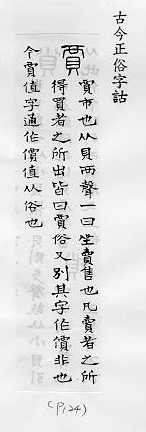 古今正俗字詁
賈
賈市也从貝襾聲一曰坐賣售也凡賣者之所
得買者之所出皆曰賈俗又別其字作價非也
今賈值字通作價值从俗也
(P124)